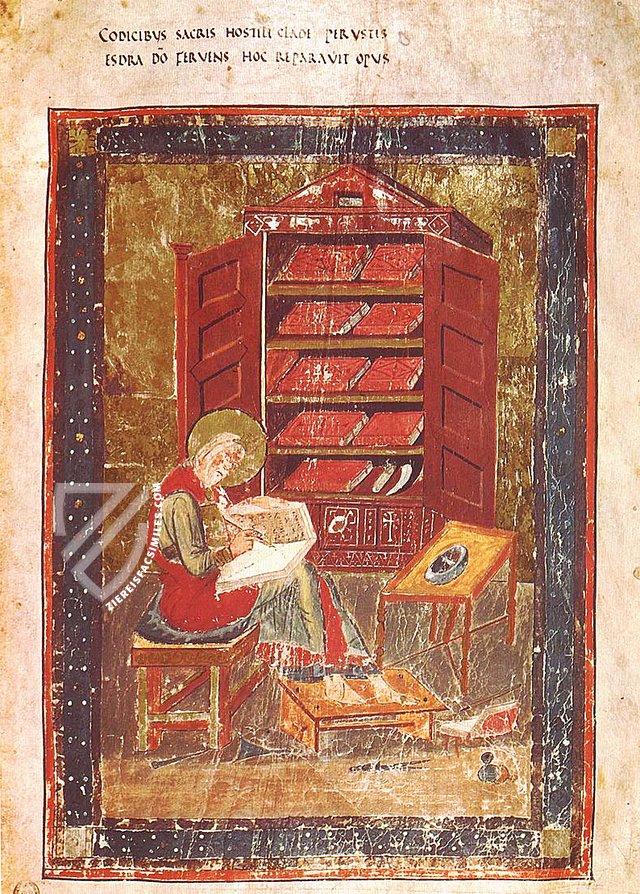 CODICIBVS SACRIS HOSTILI CLADE PERVSTIS
ESDRA DO FERVENS HOC REPARAVIT OPVS
ZIEREISFACSIMILES.COM